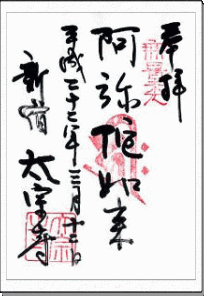 奉拝
阿弥陀如来
平成二十二年三月十二日
新宿 太宗寺